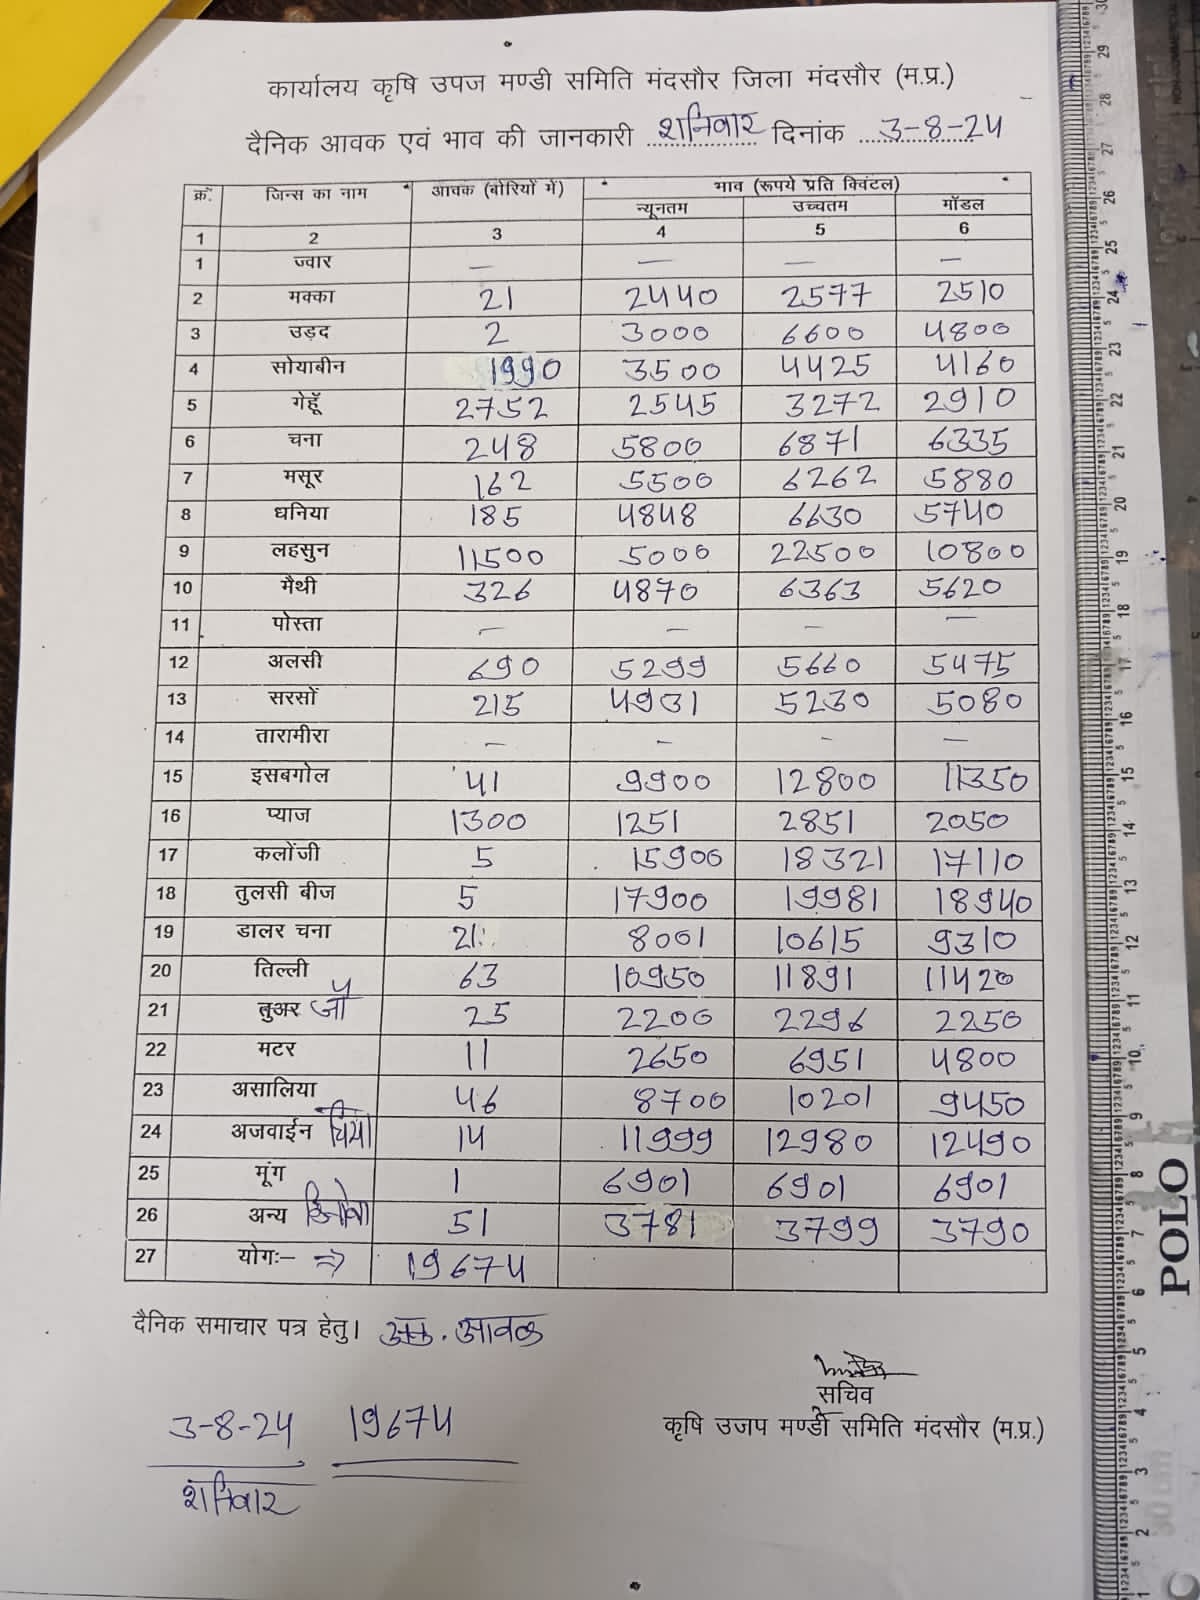 कार्यालय कृषि उपज मण्डी समिति मंदसौर जिला मंदसौर (म.प्र.)
दैनिक आवक एवं भाव की जानकारी शनिवार दिनांक 3-8-24
क्रं. जिन्स का नाम आवक (बोरियों में) भाव (रूपये प्रति क्विंटल)
न्यूनतम उच्चतम मॉडल
1 2 3 4 5 6
1 ज्वार — — — —
2 मक्का 21 2440 2577 2510
3 उड़द 2 3000 6600 4800
4 सोयाबीन 1990 3500 4425 4160
5 गेहूँ 2752 2545 3272 2910
6 चना 248 5800 6871 6335
7 मसूर 162 5500 6262 5880
8 धनिया 185 4848 6630 5740
9 लहसुन 11500 5000 22500 10800
10 मैथी 326 4870 6363 5620
11 पोस्ता — — — —
12 अलसी 690 5299 5660 5475
13 सरसों 215 4931 5230 5080
14 तारामीरा — — — —
15 इसबगोल 41 9900 12800 11350
16 प्याज 1300 1251 2851 2050
17 कलोंजी 5 15900 18321 17110
18 तुलसी बीज 5 17900 19981 18940
19 डालर चना 21 8001 10615 9310
20 तिल्ली 63 10950 11891 11420
21 तुअर जौ 25 2200 2296 2250
22 मटर 11 2650 6951 4800
23 असालिया 46 8700 10201 9450
24 अजवाईन चिया 14 11999 12980 12490
25 मूंग 1 6901 6901 6901
26 अन्य 51 3781 3799 3790
27 योगः– ⇒ 19674
दैनिक समाचार पत्र हेतु। आवक
सचिव
कृषि उजप मण्डी समिति मंदसौर (म.प्र.)
3-8-24 19674
शनिवार
POLO